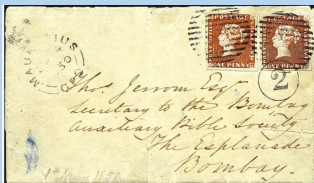 MAURITIUS
POSTAGE
ONE PENNY
POSTAGE
ONE PENNY
2
Thos Jerrom Esqre
Secretary to the Bombay
Auxiliary Bible Society
The Esplanade
Bombay.